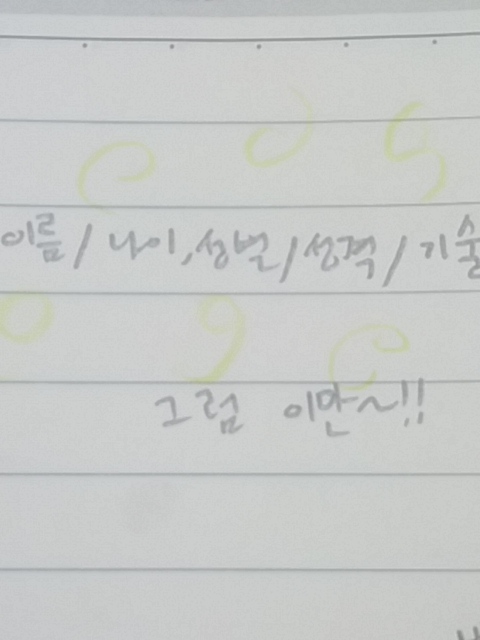 이름/나이,성별/성격/기술
그럼 이만~!!